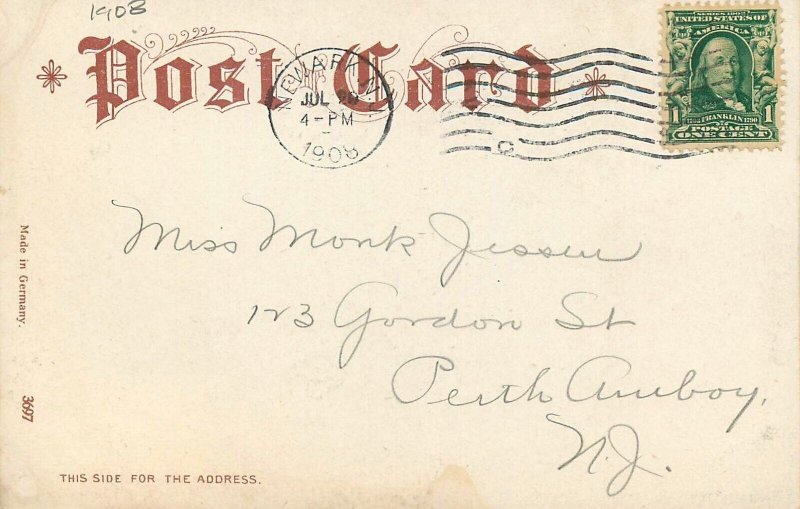 1908
Post Card
NEWARK, N.J.
JUL
4-PM
1908
C
SERIES 1902
UNITED STATES OF
AMERICA
1 FRANKLIN 1790 1
POSTAGE
ONE CENT
Miss Monk Jessen
123 Gordon St
Perth Amboy,
N.J.
Made in Germany.
3697
THIS SIDE FOR THE ADDRESS.